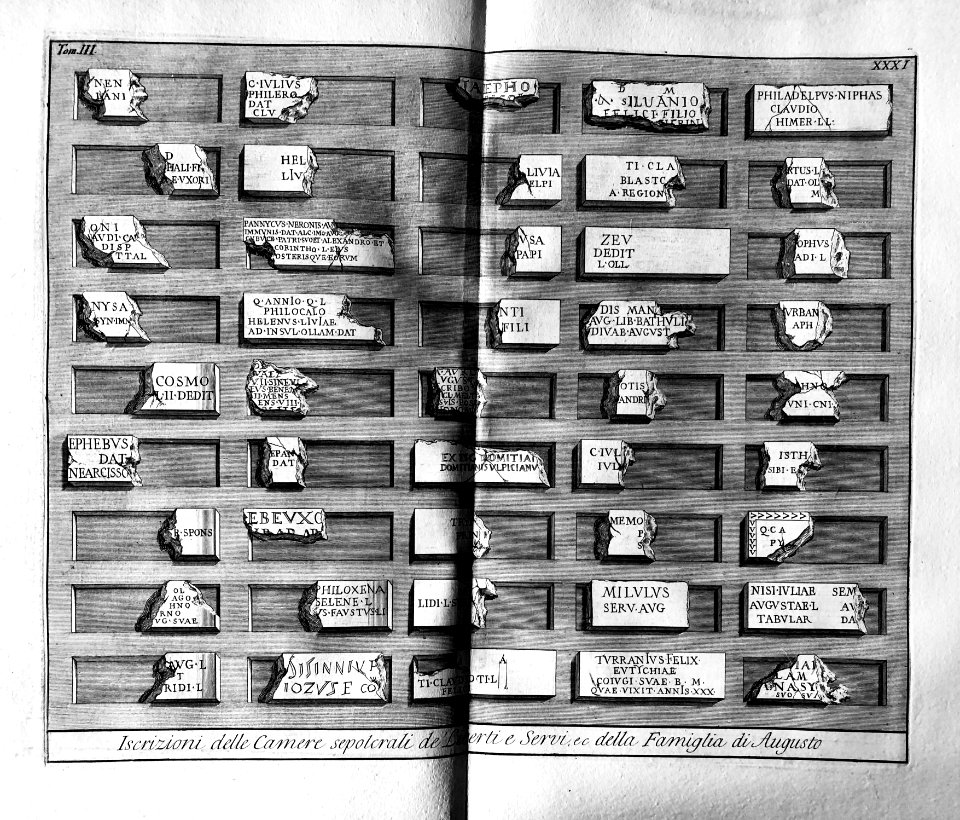 Tom. III.
XXXI
NEN
C·IVLIVS
PHILERO
DAT
CLV
AEPHO
D M
SILVANIO
FELICI·FILIO
PHILADELPVS·NIPHAS
CLAVDIO
HIMER·LL:
D
HALI·FE
E·VXORI
HEL
LIV
LIVIA
ELPI
TI·CLA
BLASTC
A·REGION
RTVS·L
DAT·OL
M
ONI
AVDI·CA
DISP
TTAL
PANNYCVS·NERONIS·AV
IMMVNIS·DAT·ALCIMO·AVO
PATRI·SVO·ET·ALEXANDRO·ET
CORINTHO·L·EIVS
OSTERISQVE·EORVM
VSA
PAPI
ZEV
DEDIT
L·OLL·
OPHVS
ADI·L
NYSA
SYN·IM
Q·ANNIO·Q·L
PHILOCALO
HELENVS·LIVIAE
AD·INSVL·OLLAM·DAT
NTI
FILI
DIS MAN
AVG·LIB·BATHVLI
DIVAB·AVGVST
VRBAN
APH
COSMO
L·II·DEDIT
VII·SINE
II·MENS
ENS·VIII
OTIS
ANDRI
HNO
VNI·CNI
EPHEBVS
DAT
NEARCISSO
EPAN
DAT
DOMITIAE
DOMITIANI SVLPICIANV
C·IVL
IVL
ISTH
SIBI·E
R·SPONS
EBEVXO
MEMO
P
S
Q·CA
PY
OL
AGO
HNO
RNO
VG·SVAE
PHILOXENA
SELENE·L
VS·FAVSTVS·LI
LIDI·L·S
MILVLVS
SERV·AVG
NISI·IVLIAE SEM
AVGVSTAE·L AV
TABVLAR DA
AVG·L
T
RIDI·L
SISINNIV P
IOZVS E CO
TI·CLAVDIO TI·L
TVRRANIVS·FELIX·
EVTYCHIAE
COIVGI·SVAE·B·M·
QVAE·VIXIT·ANNIS·XXX
MAI
LAM
GNASY
SVO/SVA
Iscrizioni delle Camere sepolcrali de' Liberti e Servi, ec della Famiglia di Augusto